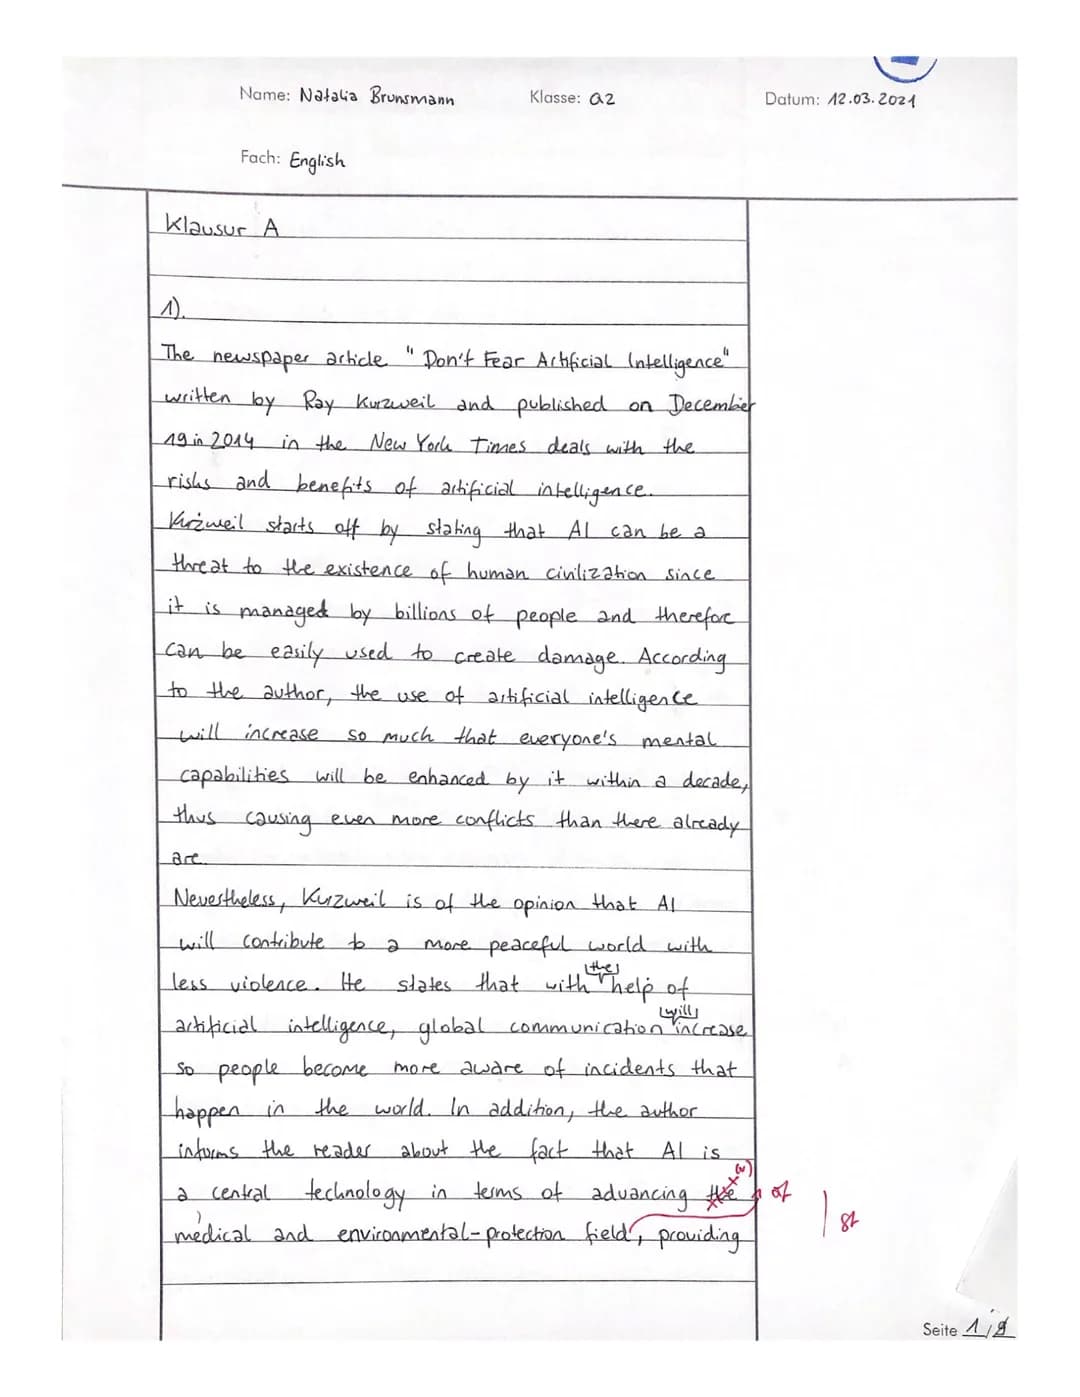 Name: Natalia Brunsmann Klasse: Q2 Datum: 12.03.2021
Fach: English
Klausur A
1).
The newspaper article "Don't Fear Artificial Intelligence"
written by Ray Kurzweil and published on December
19 in 2014 in the New York Times deals with the
risks and benefits of artificial intelligence.
Kurzweil starts off by stating that AI can be a
threat to the existence of human civilization since
it is managed by billions of people and therefore
can be easily used to create damage. According
to the author, the use of artificial intelligence
will increase so much that everyone's mental
capabilities will be enhanced by it within a decade,
thus causing even more conflicts than there already
are.
Nevertheless, Kurzweil is of the opinion that AI
will contribute to a more peaceful world with
less violence. He states that with the help of
artificial intelligence, global communication will increase
so people become more aware of incidents that
happen in the world. In addition, the author
informs the reader about the fact that AI is
a central technology in terms of advancing the of
medical and environmental-protection field, providing St
Seite 1/9